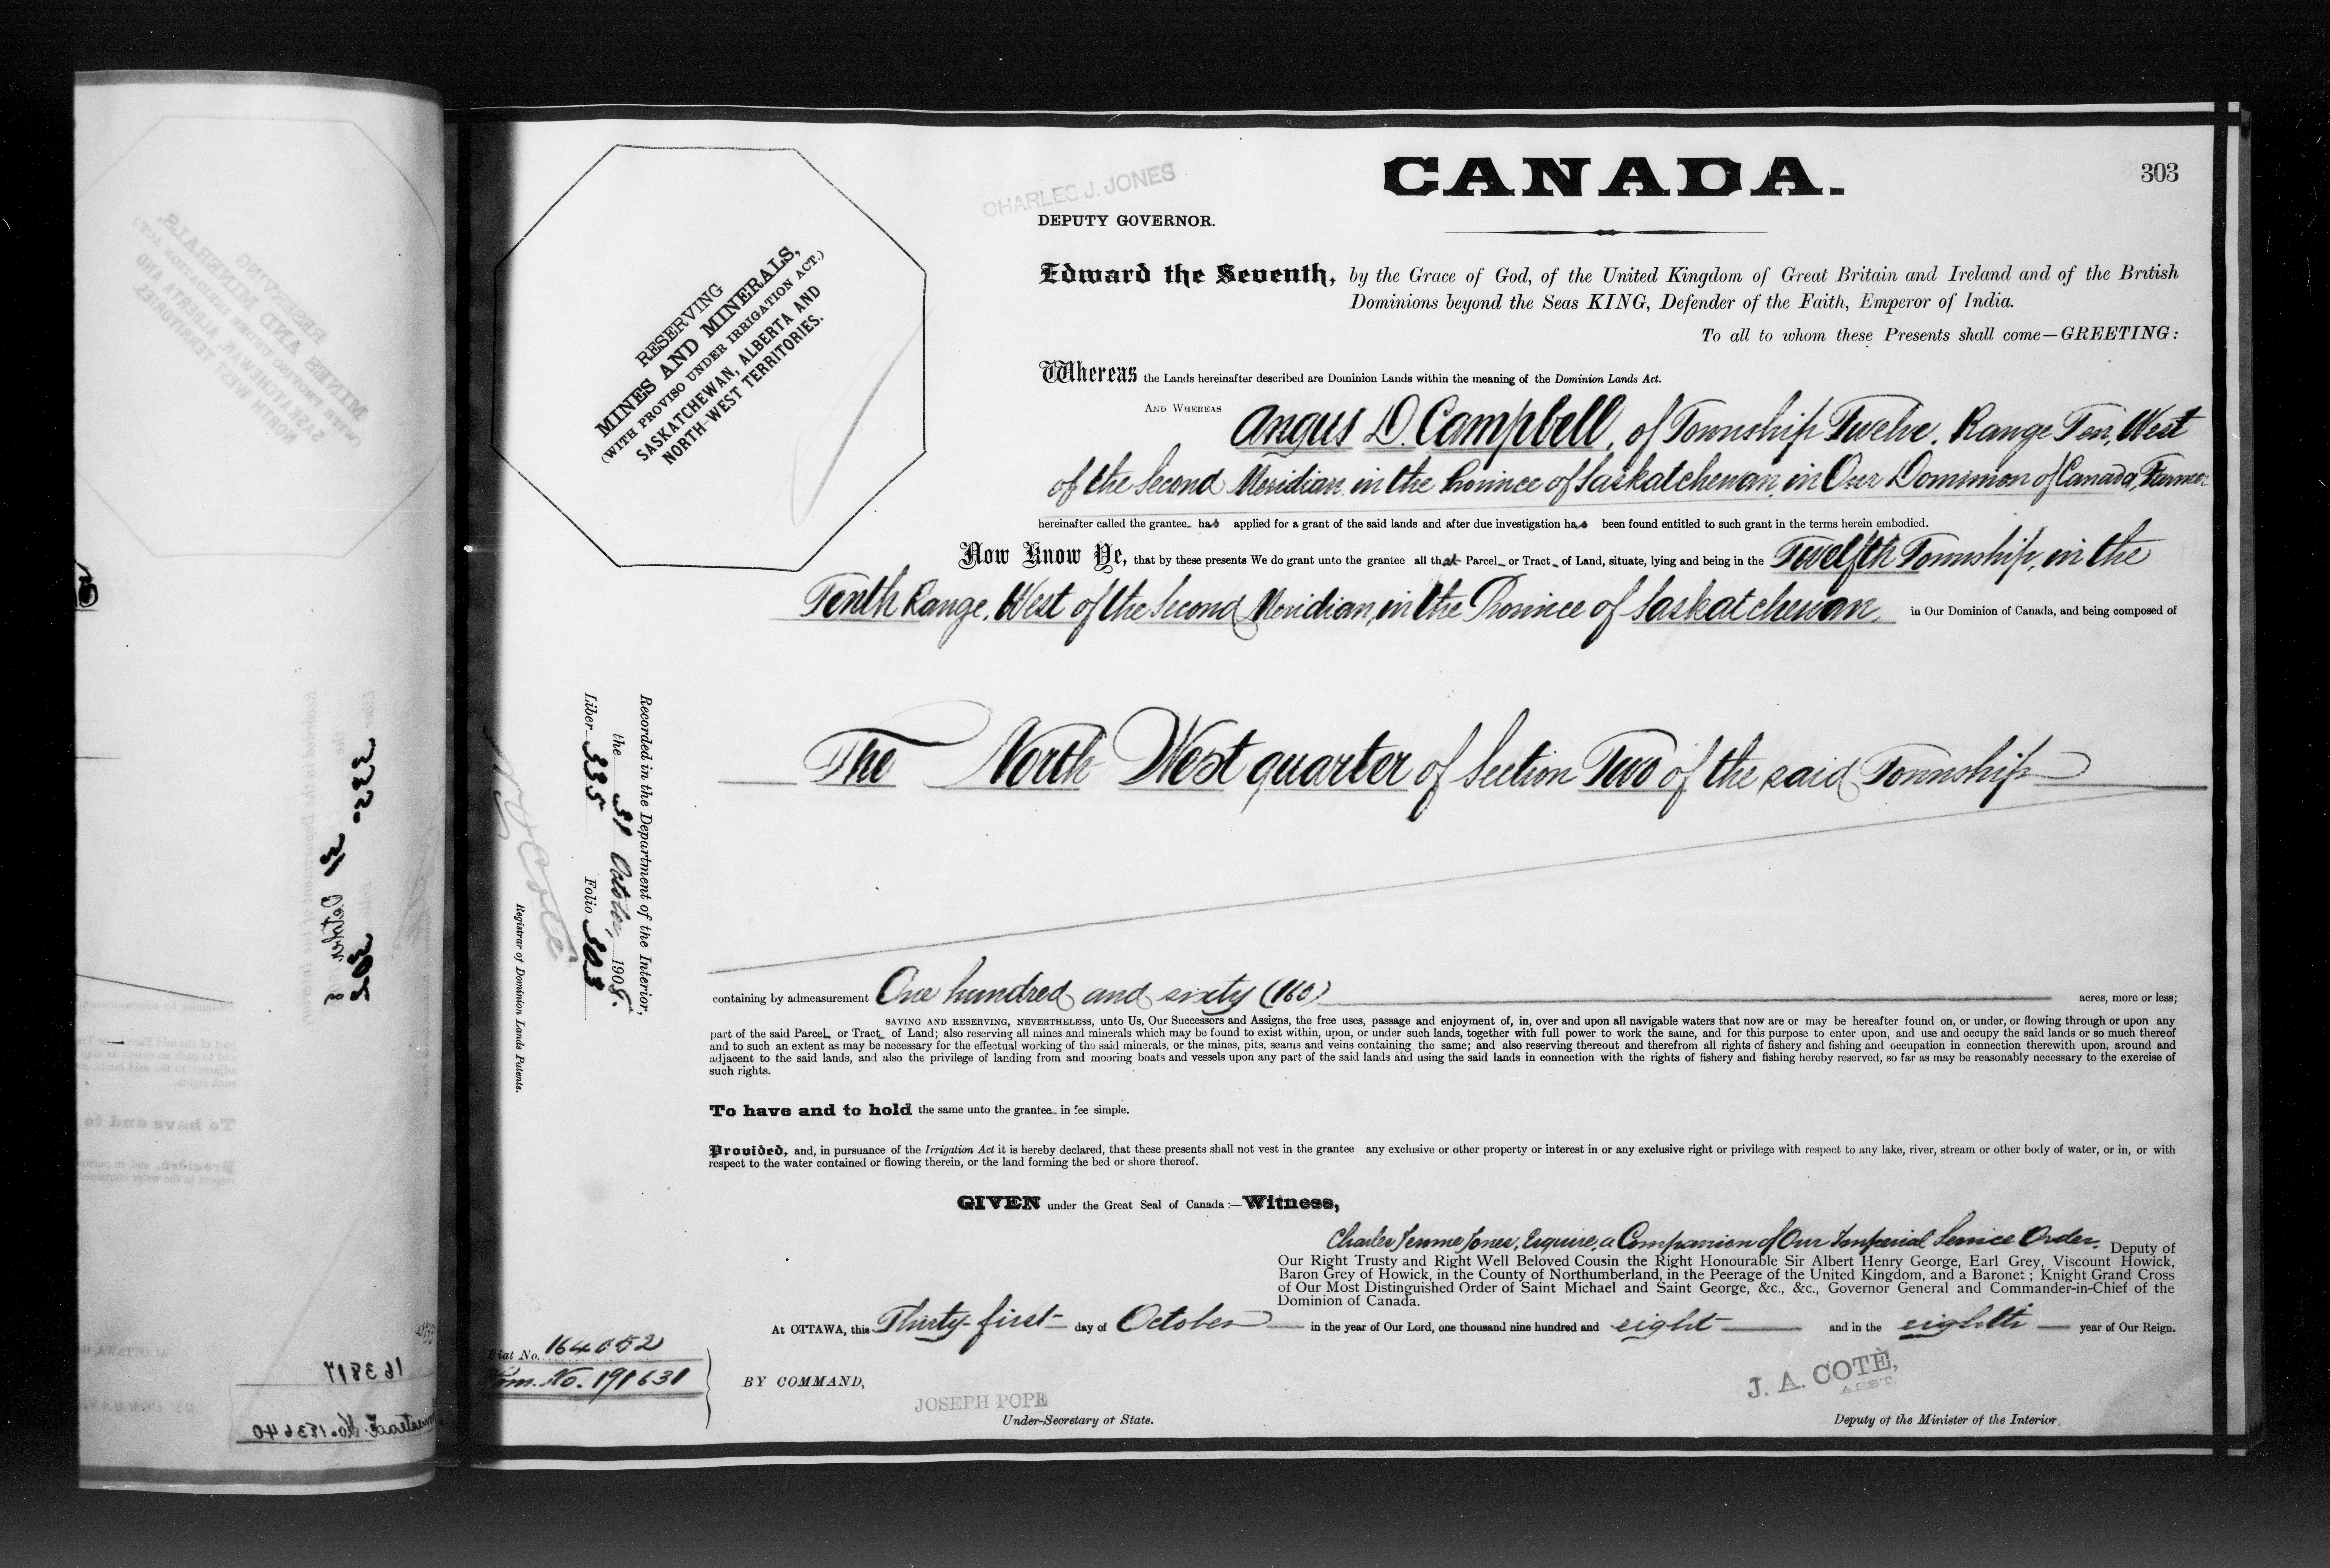 CANADA.
303
CHARLES J. JONES
DEPUTY GOVERNOR.
RESERVING
MINES AND MINERALS,
(WITH PROVISO UNDER IRRIGATION ACT.)
SASKATCHEWAN, ALBERTA AND
NORTH-WEST TERRITORIES.
Edward the Seventh, by the Grace of God, of the United Kingdom of Great Britain and Ireland and of the British
Dominions beyond the Seas KING, Defender of the Faith, Emperor of India.
To all to whom these Presents shall come—GREETING:
Whereas the Lands hereinafter described are Dominion Lands within the meaning of the Dominion Lands Act.
AND WHEREAS Angus D. Campbell, of Township Twelve, Range Ten, West
of the Second Meridian, in the Province of Saskatchewan, in Our Dominion of Canada, Farmer
hereinafter called the grantee has applied for a grant of the said lands and after due investigation has been found entitled to such grant in the terms herein embodied.
Now Know Ye, that by these presents We do grant unto the grantee all that Parcel or Tract of Land, situate, lying and being in the Twelfth Township, in the
Tenth Range, West of the Second Meridian, in the Province of Saskatchewan, in Our Dominion of Canada, and being composed of
The North West quarter of Section Two of the said Township
Recorded in the Department of the Interior,
the 31 October, 1908.
Liber 335 Folio 303
N. O. Coté
Registrar of Dominion Lands Patents.
containing by admeasurement One hundred and sixty (160) acres, more or less;
SAVING AND RESERVING, NEVERTHELESS, unto Us, Our Successors and Assigns, the free uses, passage and enjoyment of, in, over and upon all navigable waters that now are or may be hereafter found on, or under, or flowing through or upon any
part of the said Parcel or Tract of Land; also reserving all mines and minerals which may be found to exist within, upon, or under such lands, together with full power to work the same, and for this purpose to enter upon, and use and occupy the said lands or so much thereof
and to such an extent as may be necessary for the effectual working of the said minerals, or the mines, pits, seams and veins containing the same; and also reserving thereout and therefrom all rights of fishery and fishing and occupation in connection therewith upon, around and
adjacent to the said lands, and also the privilege of landing from and mooring boats and vessels upon any part of the said lands and using the said lands in connection with the rights of fishery and fishing hereby reserved, so far as may be reasonably necessary to the exercise of
such rights.
To have and to hold the same unto the grantee in fee simple.
Provided, and, in pursuance of the Irrigation Act it is hereby declared, that these presents shall not vest in the grantee any exclusive or other property or interest in or any exclusive right or privilege with respect to any lake, river, stream or other body of water, or in, or with
respect to the water contained or flowing therein, or the land forming the bed or shore thereof.
GIVEN under the Great Seal of Canada:—Witness,
Charles Jerome Jones, Esquire, a Companion of Our Imperial Service Order, Deputy of
Our Right Trusty and Right Well Beloved Cousin the Right Honourable Sir Albert Henry George, Earl Grey, Viscount Howick,
Baron Grey of Howick, in the County of Northumberland, in the Peerage of the United Kingdom, and a Baronet; Knight Grand Cross
of Our Most Distinguished Order of Saint Michael and Saint George, &c., &c., Governor General and Commander-in-Chief of the
Dominion of Canada.
At OTTAWA, this Thirty-first day of October in the year of Our Lord, one thousand nine hundred and eight and in the eighth year of Our Reign.
Fiat No. 164052
Hom. No. 191631
BY COMMAND,
JOSEPH POPE
Under-Secretary of State.
J. A. COTÈ,
ASST.
Deputy of the Minister of the Interior.